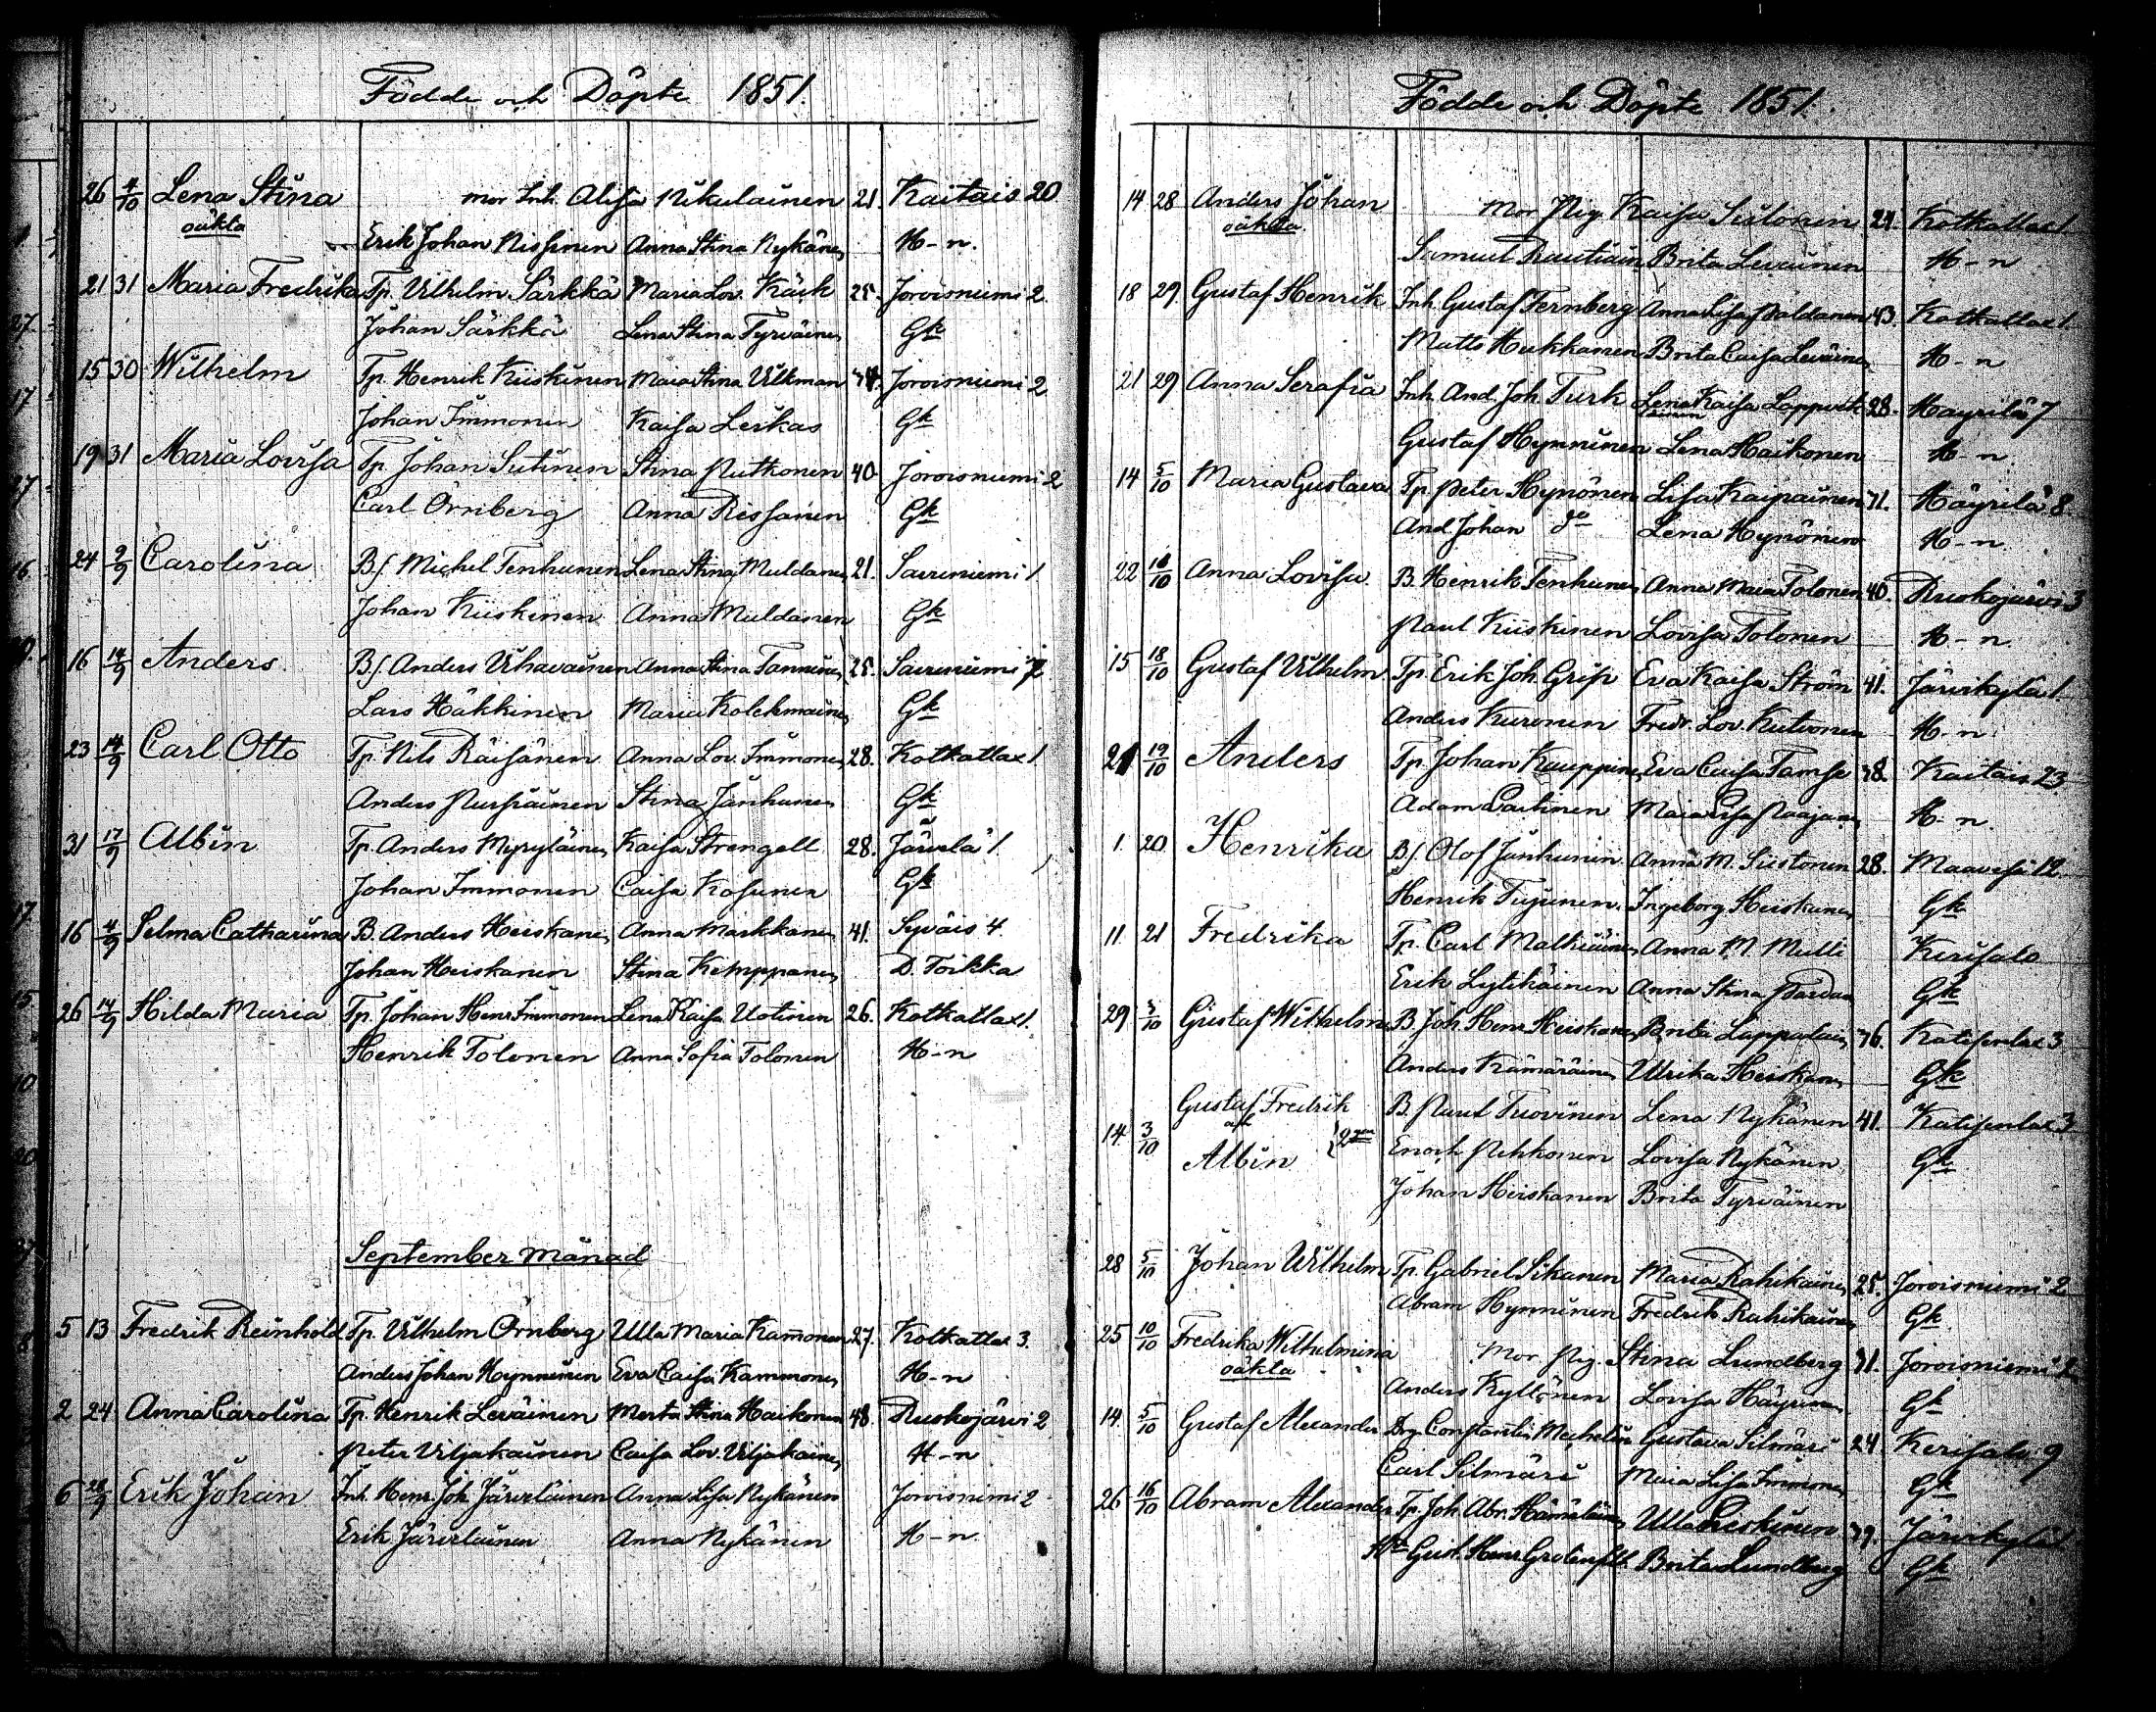 Födde och Döpte 1851.
26 4/10 Lena Stina mor Inh. Alisa Nikulainen 21. Kaitais 20
oäkta Erik Johan Nissinen Anna Stina Nykänen H-n.
21 31 Maria Fredrika Tp. Vilhelm Särkkä Maria Lov. Käck 25. Joroisniemi 2.
Johan Särkkä Lena Stina Tyrväinen Gk
15 30 Wilhelm Tp. Henrik Kiiskinen Maia Stina Ulkman Joroisniemi 2
Johan Immonen Kaisa Leskas Gk
19 31 Maria Lovisa Tp. Johan Sutinen Stina Putkonen 40 Joroisniemi 2
Carl Örnberg Anna Rissanen Gk
24 2/9 Carolina B.s. Michel Tenhunen Lena Stina Muldanen 21. Savuniemi 1
Johan Kiiskinen Anna Muldanen Gk
16 14/9 Anders B.s. Anders Vihavainen Anna Stina Tanninen 25. Savuniemi 2
Lars Häkkinen Maria Kolehmainen Gk
23 14/9 Carl Otto Tp. Nils Räisänen Anna Lov. Immonen 28. Kotkatlax 1
Anders Pursiainen Stina Janhunen Gk
31 17/9 Albin Tp. Anders Myryläinen Kaisa Strengell 28. Järvelä 1.
Johan Immonen Caisa Kosunen Gk
16 4/9 Selma Catharina B. Anders Heiskanen Anna Markkanen 41. Syväis 4.
Johan Heiskanen Stina Kemppanen D. Toikka
26 14/9 Hilda Maria Tp. Johan Henr. Immonen Lena Kaisa Uotinen 26. Kotkatlax 1.
Henrik Tolonen Anna Sofia Tolonen H-n
September månad
5 13 Fredrik Reinhold Tp. Vilhelm Örnberg Ulla Maria Kammonen 27. Kotkatlax 3.
Anders Johan Hynninen Eva Caisa Kammonen H-n
2 24 Anna Carolina Tp. Henrik Leväinen Merta Stina Haikonen 48. Ruskojärvi 2
Peter Viljakainen Caisa Lov. Viljakainen H-n
6 28/9 Erik Johan Inh. Henr. Joh. Järvelainen Anna Lisa Nykänen Joroisnimi 2
Erik Järvelainen Anna Nykänen H-n
Födde och Döpte 1851.
14 28 Anders Johan Mor Pig. Kaisa Siitonen 21. Kotkatlax 1
oäkta Samuel Rautiain Brita Leväinen H-n
18 29 Gustaf Henrik Inh. Gustaf Ternberg Anna Lisa Paldanen 43. Kotkatlax 1.
Matts Hukkanen Brita Caisa Leväinen H-n
21 29 Anna Serafia Inh. And. Joh. Turk Lena Kaisa Lappvik 28. Häyrilä 7
Gustaf Hynninen Lena Haikonen H-n
14 5/10 Maria Gustava Tp. Peter Hynönen Lisa Kaipainen 71. Häyrilä 8.
And. Johan do Lena Hynönen H-n
22 18/10 Anna Lovisa B. Henrik Tenhunen Anna Maria Tolonen 40. Ruskojärvi 3
Paul Kiiskinen Lovisa Tolonen H-n
15 18/10 Gustaf Vilhelm Tp. Erik Joh. Grip Eva Kaisa Ström 41. Järvikylä 1.
Anders Kuronen Fredr. Lov. Kutvonen H-n
21 19/10 Anders Tp. Johan Kauppinen Eva Caisa Tamse 38. Kaitais 23
Adam Laitinen Maia Lisa H-n.
1. 20 Henrika B.s. Olof Janhunen Anna M. Siistonen 28. Maavesi 12.
Henrik Tujunen Ingeborg Heiskanen Gk
11. 21 Fredrika Tp. Carl Malkiäinen Anna M. Mulli Kerisalo
Erik Lyytikäinen Anna Stina Gk
29 3/10 Gustaf Wilhelm B. Joh. Henr. Heiskanen Brita Lappalain 36. Katisenlax 3
Anders Kämäräinen Ulrika Heiskanen Gk
Gustaf Fredrik B. Paul Tuovinen Lena Nykänen 41. Katisenlax 3
14. 3/10 och } 2 Enoch Pehkonen Lovisa Nykänen Gk
Albin Johan Heiskanen Brita Tyrväinen
28 5/10 Johan Wilhelm Tp. Gabriel Sikanen Maria Rahikainen 25. Joroisniemi 2
Abram Hynninen Fredrik Rahikainen Gk
25 10/10 Fredrika Wilhelmina Mor Pig. Stina Lundberg 31. Joroisniemi
oäkta Anders Kyllönen Lovisa Häyrinen Gk
14. 5/10 Gustaf Alexander Drg. Constantin Mechelin Gustava Silmäri 24 Kerisalo 9
Carl Silmäri Maia Lisa Immonen Gk
26 16/10 Abram Alexander Tp. Joh. Abr. Hämäläinen Ulla 39. Järvikylä 1
Gust. Henr. Grotenfelt Brita Lundberg Gk